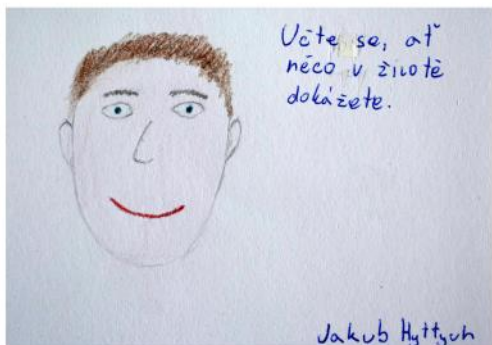 Učte se, ať
něco v životě
dokážete.
Jakub Hyttych